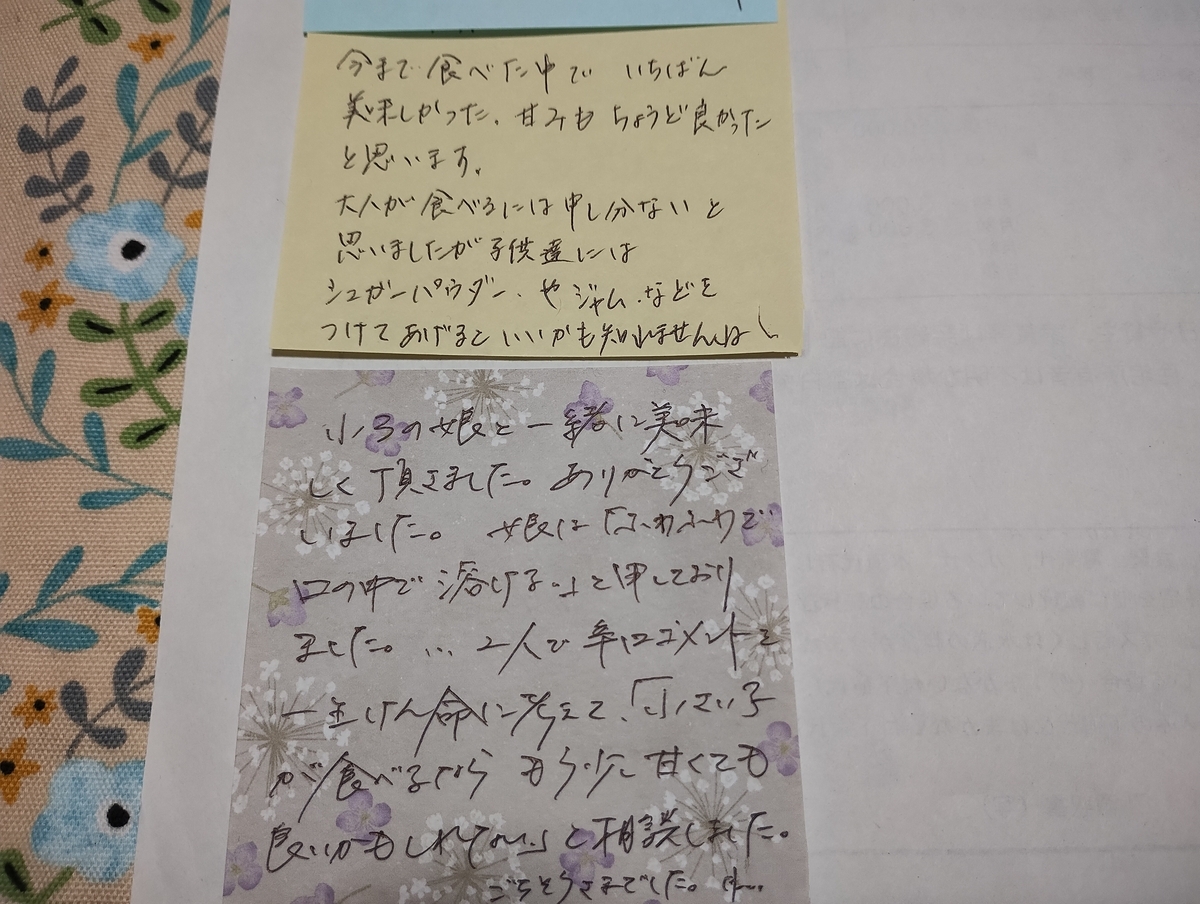 今まで食べた中で いちばん
美味しかった。甘みも ちょうど良かった
と思います。
大人が食べるには申し分ないと
思いましたが子供達には
シュガーパウダー、やジャム、などを
つけてあげると いいかも知れませんね
小3の娘と一緒に美味
しく頂きました。ありがとうござ
いました。 娘は「ふわふわで
口の中で溶ける。」と申しており
ました。… 2人で辛口コメントを
一生けん命に考えて、「小さい子
が食べるなら もう少し甘くても
良いかもしれない。」と相談しました。
ごちそうさまでした。